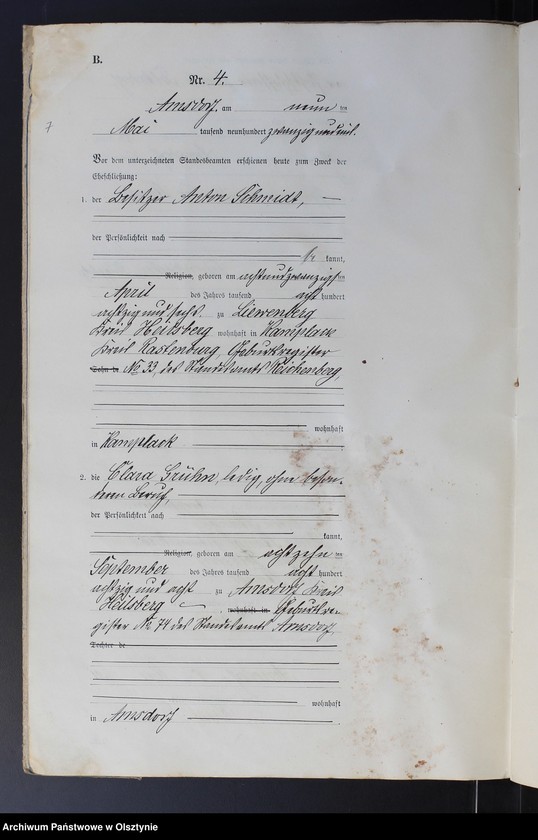 B.
Nr. 4.
Arnsdorf am neun ten
Mai tausend neunhundert zwanzig und
7
Vor dem unterzeichneten Standesbeamten erschienen heute zum Zweck der
Eheschließung:
1. der Besitzer Anton Schmidt,
der Persönlichkeit nach
be kannt,
Religion, geboren am achtundzwanzigsten
April des Jahres tausend acht hundert
achtzig und sechs zu Liewenberg
Kreis Heilsberg wohnhaft in Kamplack
Kreis Rastenburg, Geburtsregister
Sohn de No 33, des Standesamts Reichenberg,
wohnhaft
in Kamplack
2. die Clara Grühn, ledig, ohne beson-
deren Beruf,
der Persönlichkeit nach
kannt,
Religion, geboren am achtzehn ten
September des Jahres tausend acht hundert
achtzig und acht zu Arnsdorf Kreis
Heilsberg , wohnhaft in Geburtsre-
gister No 74 des Standesamts Arnsdorf,
Tochter de
wohnhaft
in Arnsdorf
Archiwum Państwowe w Olsztynie